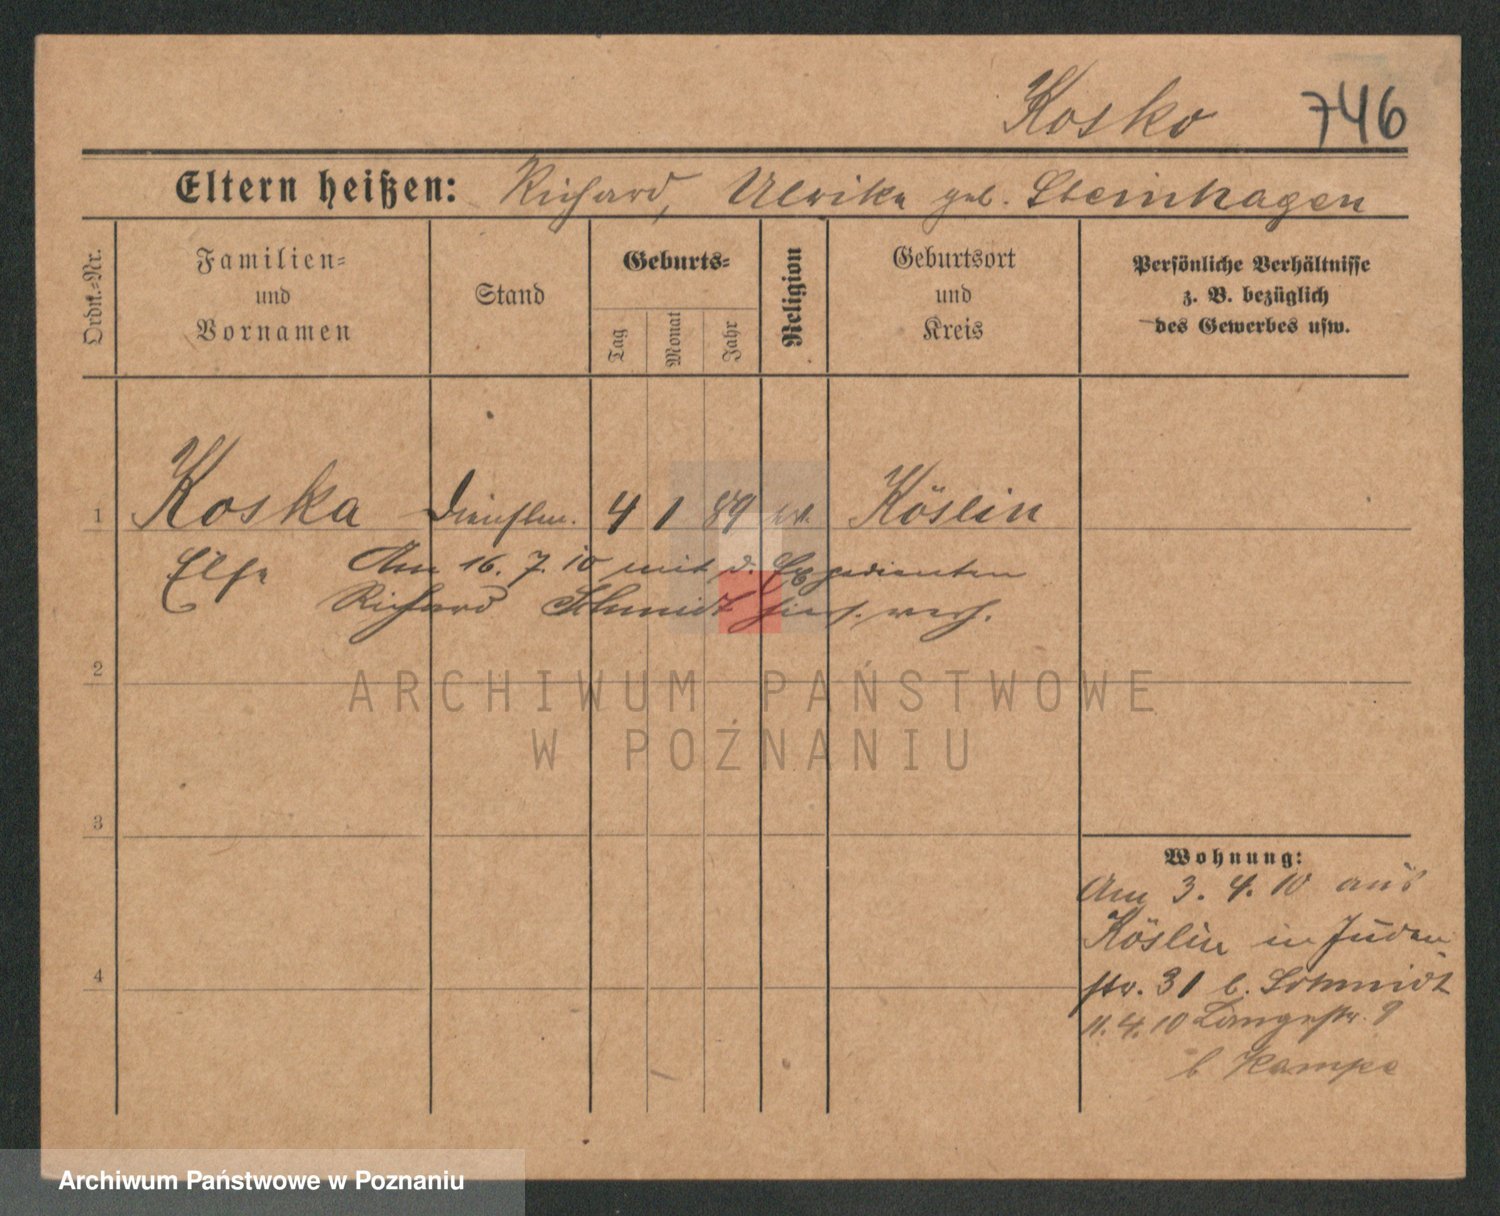 Kosko 746
Eltern heißen: Richard, Ulrike geb. Steinhagen
Ordn.-Nr.
Familien-
und
Vornamen
Stand
Geburts-
Tag
Monat
Jahr
Religion
Geburtsort
und
Kreis
Persönliche Verhältnisse
z. B. bezüglich
des Gewerbes usw.
1 Koska Dienstm. 4 1 89 ev. Köslin
Else Am 16. 7. 10 mit d. Expedienten
Richard Schmidt hier verh.
2
ARCHIWUM PAŃSTWOWE
W POZNANIU
3
Wohnung:
Am 3. 4. 10 aus
Köslin in Juden-
str. 31 b. Schmidt
4
11. 4. 10 Langestr. 9
b Kampe
Archiwum Państwowe w Poznaniu